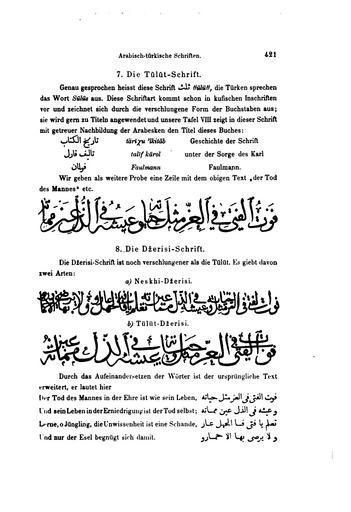 Arabisch-türkische Schriften. 421
7. Die Tülüt-Schrift.
Genau gesprochen heisst diese Schrift ثلث sülüs, die Türken sprechen
das Wort Sülüs aus. Diese Schriftart kommt schon in kufischen Inschriften
vor und zeichnet sich durch die verschlungene Form der Buchstaben aus;
sie wird gern zu Titeln angewendet und unsere Tafel VIII zeigt in dieser Schrift
mit getreuer Nachbildung der Arabesken den Titel dieses Buches:
تاريخ الكتاب Geschichte der Schrift
تأليف قارل talif károl unter der Sorge des Karl
Faulmann Faulmann.
Wir geben als weitere Probe eine Zeile mit dem obigen Text „der Tod
des Mannes“ etc.
فوت الفتى في العز مثل حياته وعيشه في الذل عين مماته
8. Die Džerisi-Schrift.
Die Džerisi-Schrift ist noch verschlungener als die Tülüt. Es giebt davon
zwei Arten:
a) Neskhi-Džerisi.
b) Tülüt-Džerisi.
Durch das Aufeinandersetzen der Wörter ist der ursprüngliche Text
erweitert, er lautet hier
Der Tod des Mannes in der Ehre ist wie sein Leben, فوت الفتى في العز مثل حياته
Und sein Leben in der Erniedrigung ist der Tod selbst; وعيشه في الذل عين مماته
Lerne, o Jüngling, die Unwissenheit ist eine Schande, تعلم يا فتى فان الجهل عار
Und nur der Esel begnügt sich damit. ولا يرضى بها الا حمار